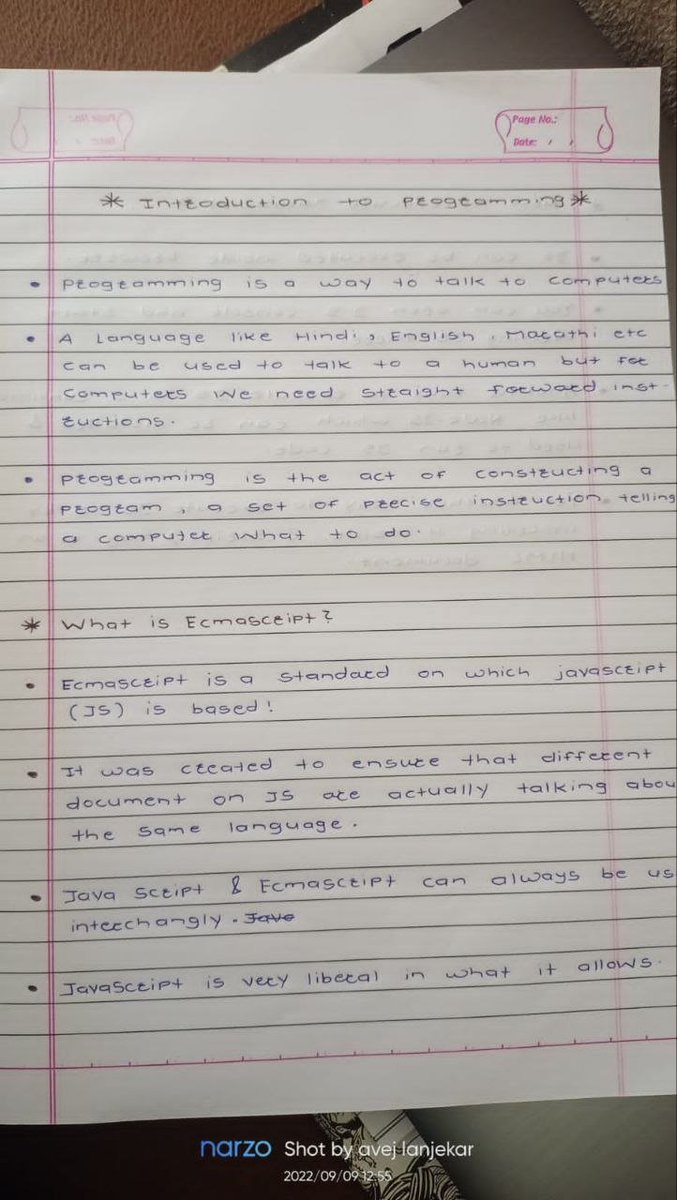 Page No.:
Date:
* Introduction to programming *
• Programming is a way to talk to computers
• A Language like Hindi, English, Marathi etc
can be used to talk to a human but for
computers we need straight forward inst-
ructions.
• Programming is the act of constructing a
program, a set of precise instruction telling
a computer what to do.
* What is Ecmascript?
• Ecmascript is a standard on which javascript
(JS) is based!
• It was created to ensure that different
document on JS are actually talking abou
the same language.
• Java Script & Ecmascript can always be us
interchangly. Jave
• JavaScript is very liberal in what it allows.
narzo Shot by avej lanjekar
2022/09/09 12:55